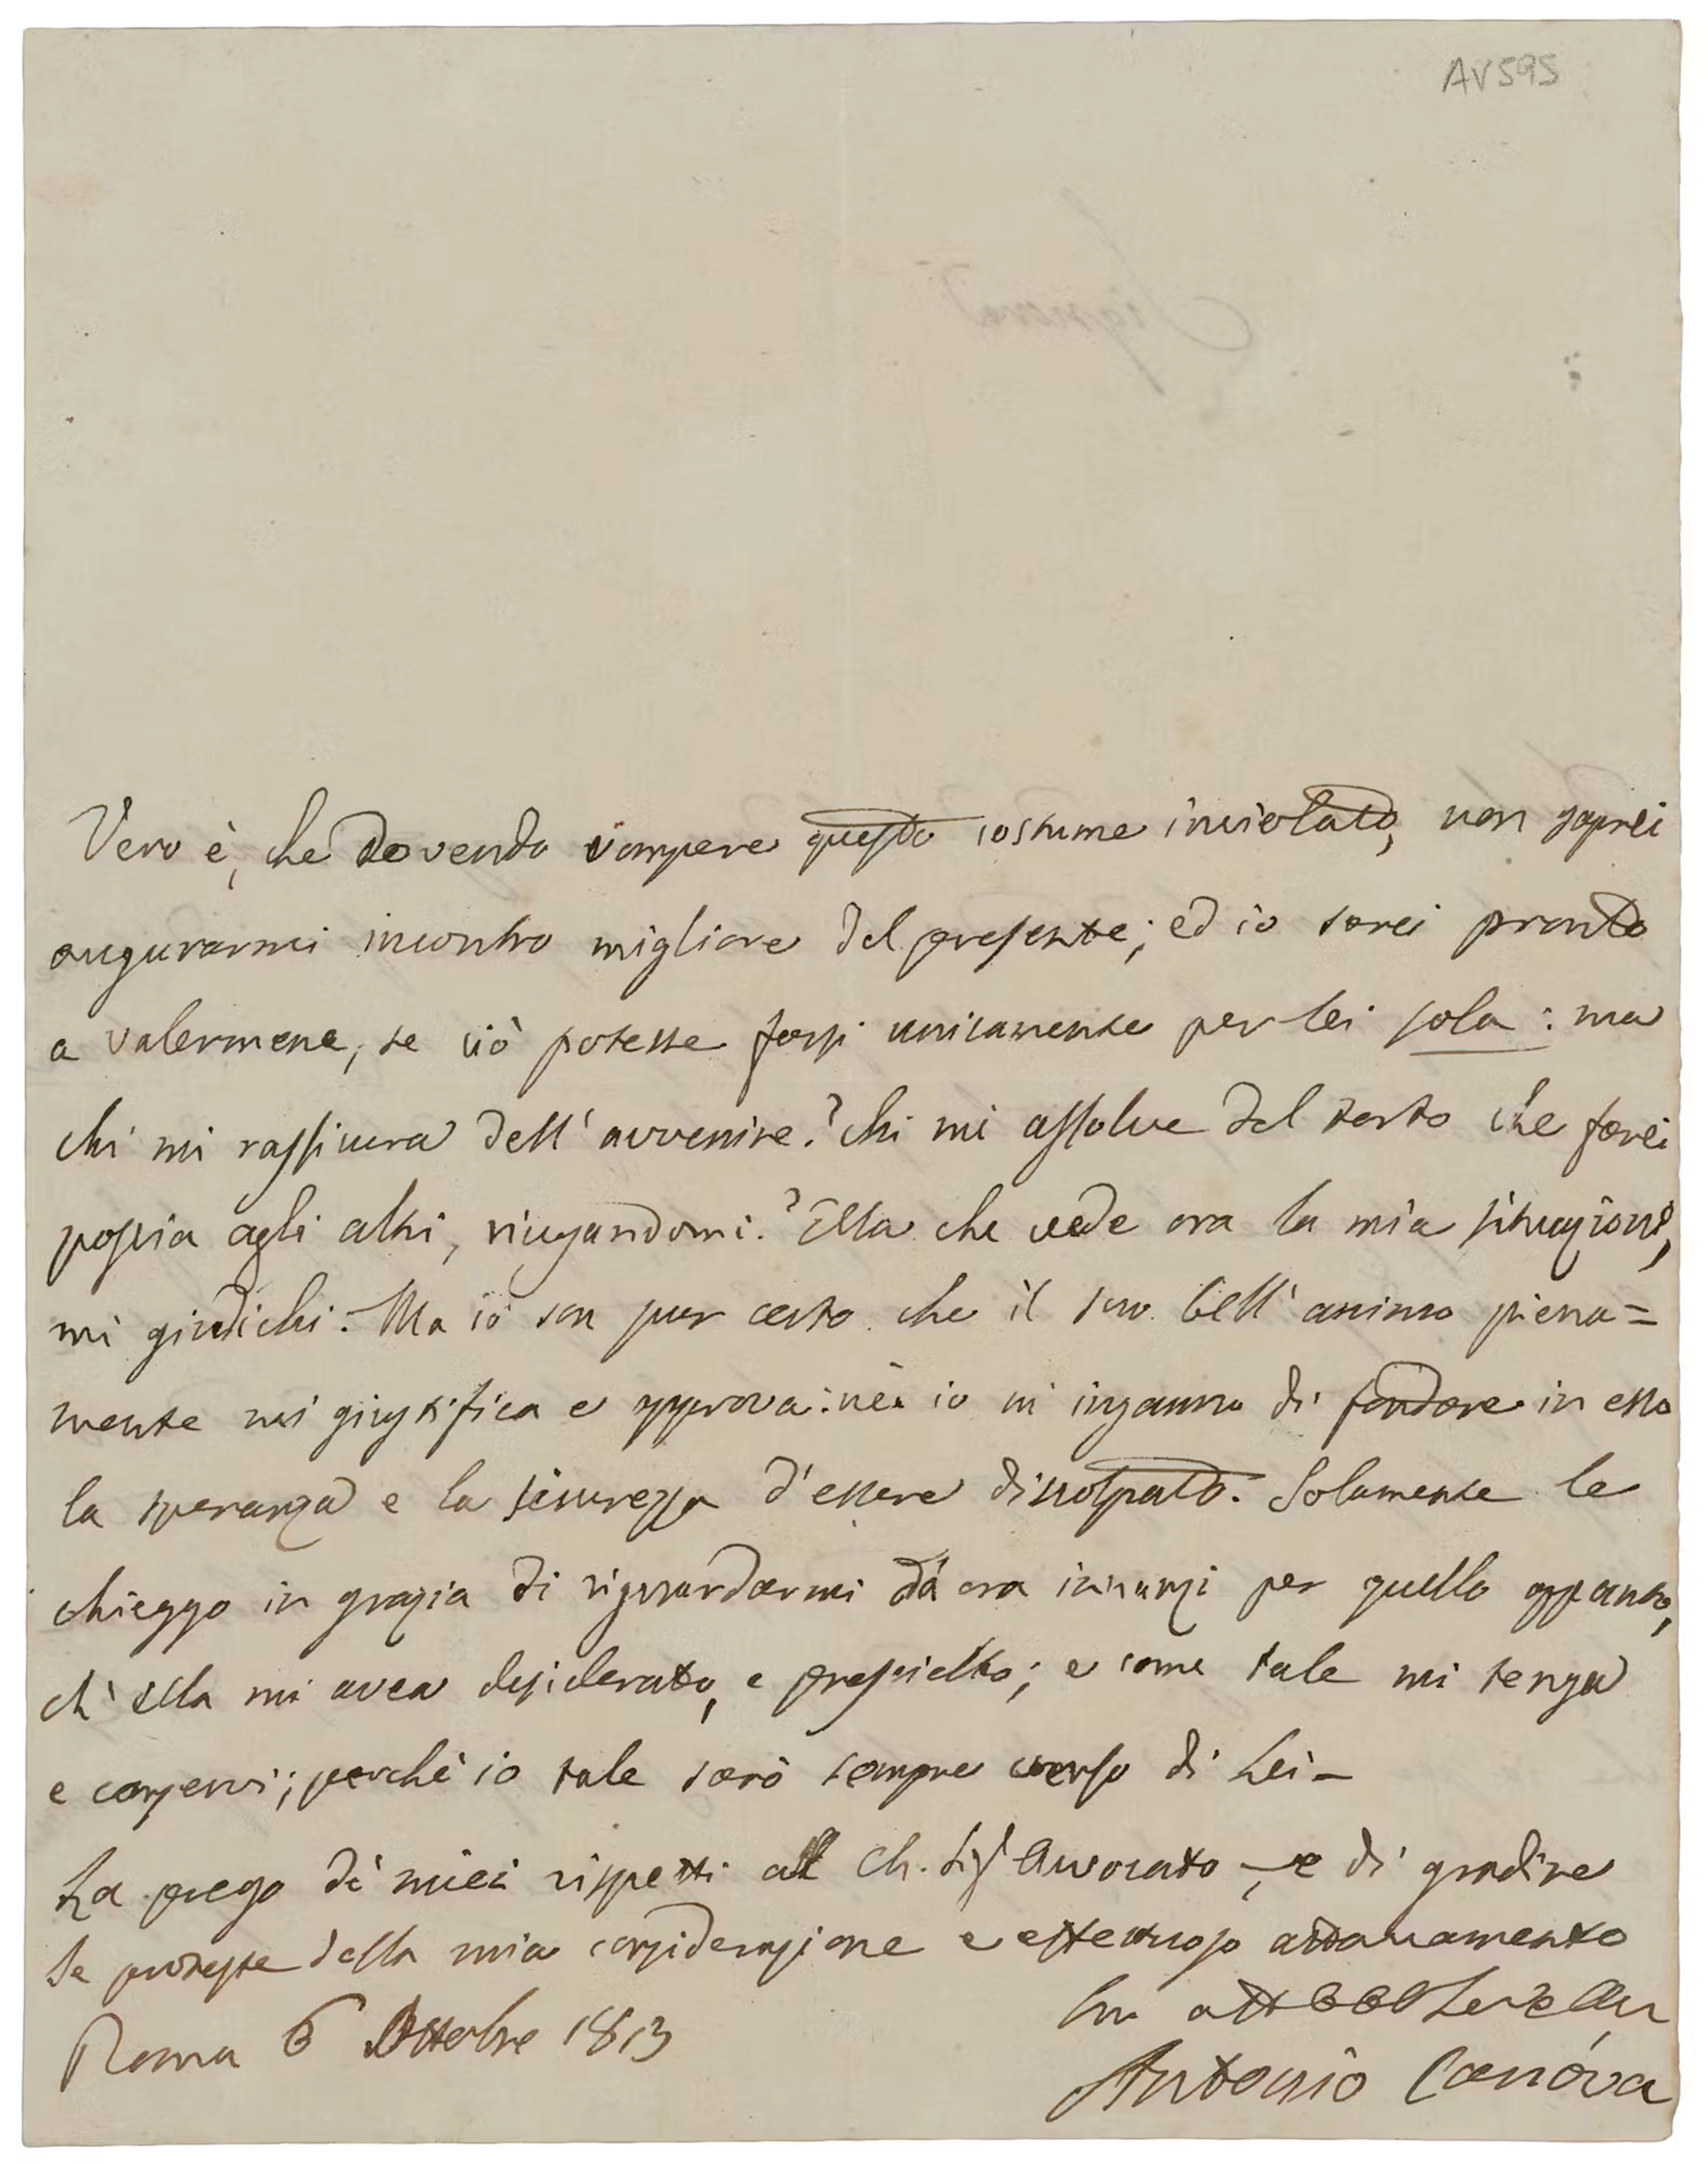 AV595
Signora
Vero è, che dovendo rompere questo costume inviolato, non saprei
augurarmi incontro migliore del presente; ed io sarei pronto
a valermene, se ciò potesse farsi unicamente per lei sola: ma
chi mi rassicura dell'avvenire? chi mi assolve del torto che farei
poscia agli altri, niegandomi? Ella che vede ora la mia situazione,
mi giudichi. Ma io son pur certo che il suo bell'animo piena=
mente mi giustifica e approva: nè io m'inganno di fondare in esso
la speranza e la sicurezza d'essere discolpato. Solamente le
chieggo in grazia di riguardarmi da ora innanzi per quello appunto,
ch'ella mi avea desiderato, e prescielto; e come tale mi tenga
e conservi; perchè io tale sarò sempre verso di Lei-
La prego de' miei rispetti al Ch. Sig Avvocato, e di gradire
le proteste della mia considerazione e affettuoso attaccamento
Roma 6 Ottobre 1813
Antonio Canova